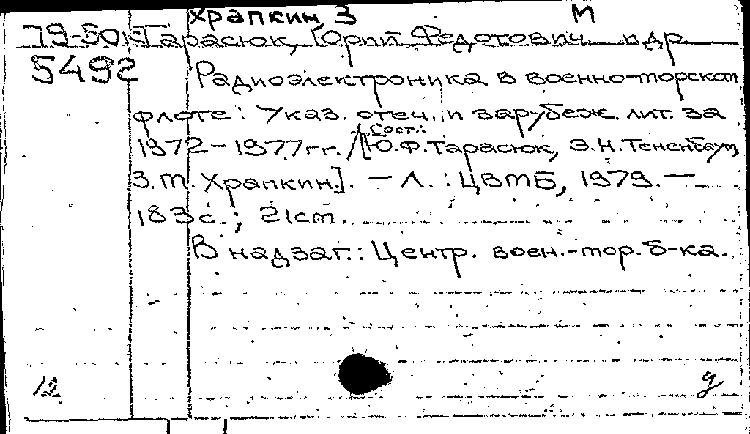 Храпкин, З М
79-50к Тарасюк, Юрий Федотович и др
5492 Радиоэлектроника в военно-морском
флоте: Указ. отеч. и зарубеж. лит. за
1972-1977 гг. / [Сост.: Ю.Ф. Тарасюк, Э.Н. Тененбаум,
З.М. Храпкин]. – Л. : ЦВМБ, 1979. –
183 с. ; 21 см.
В надзаг.: Центр. воен.-мор. б-ка.
12